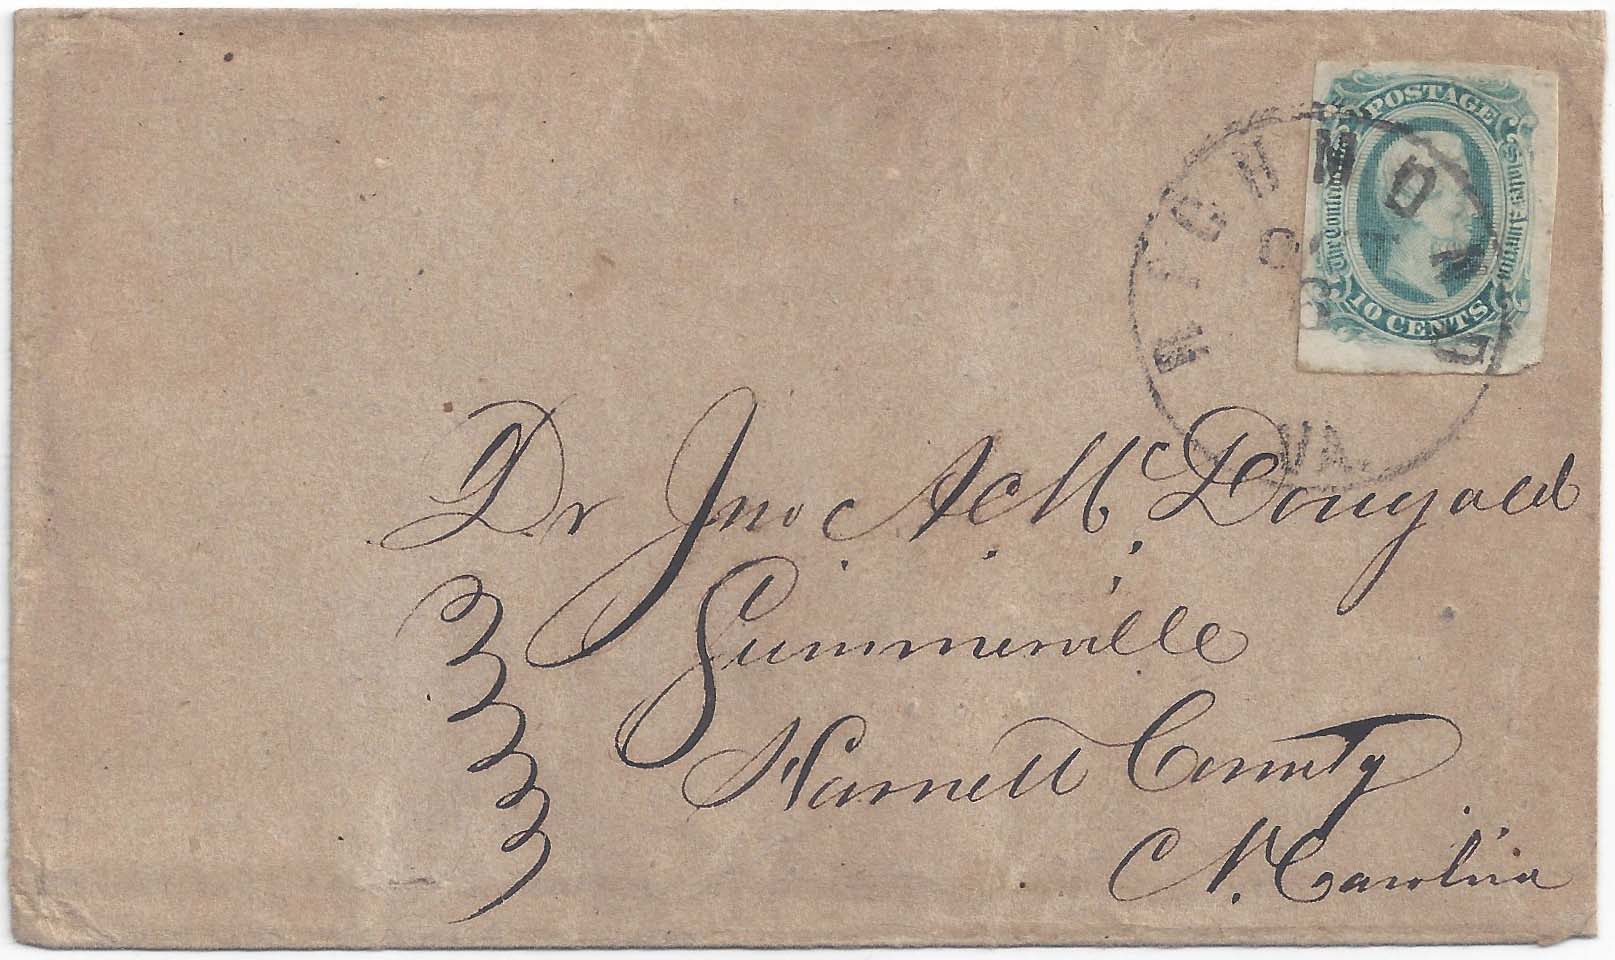 POSTAGE
The Confederate States of America
10 CENTS
RICHMOND
OCT
VA.
Dr Jno. A. McDougald
Summerville
Harnett County
N. Carolina